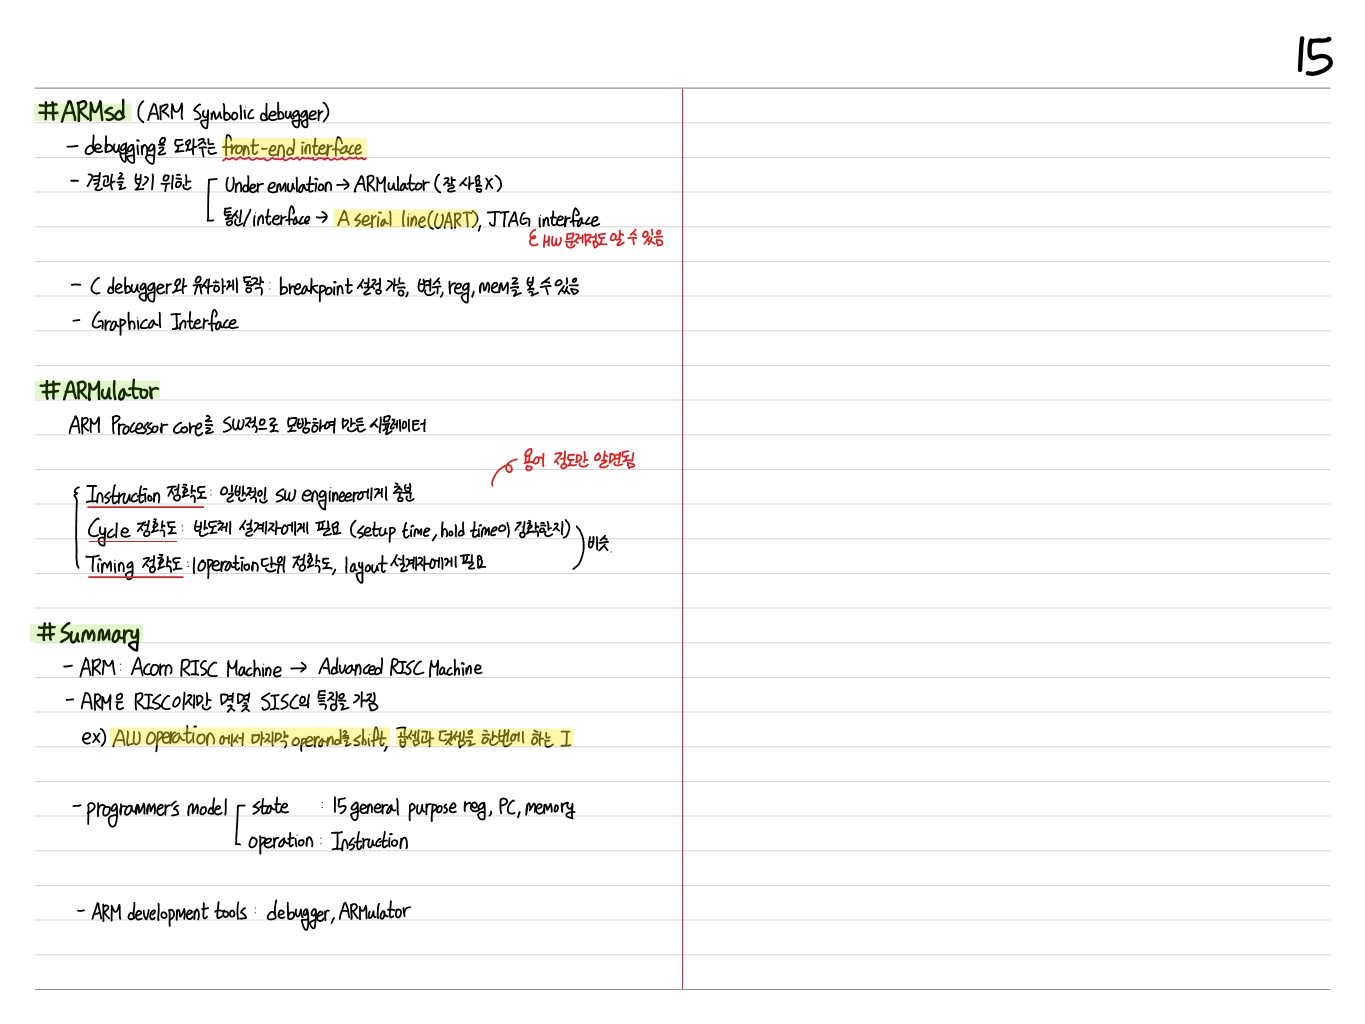 15
#ARMsd (ARM Symbolic debugger)
- debugging을 도와주는 front-end interface
- 결과를 보기 위한 Under emulation → ARMulator (잘 사용X)
통신/interface → A serial line(UART), JTAG interface
HW 문제점도 알 수 있음
- C debugger와 유사하게 동작 : breakpoint 설정 가능, 변수, reg, mem를 볼 수 있음
- Graphical Interface
#ARMulator
ARM Processor core를 SW적으로 모방하여 만든 시뮬레이터
용어 정도만 알면됨
Instruction 정확도 : 일반적인 SW engineer에게 충분
Cycle 정확도 : 반도체 설계자에게 필요 (setup time, hold time이 정확한지)
비슷.
Timing 정확도 : 1operation단위 정확도, layout 설계자에게 필요
#Summary
- ARM : Acorn RISC Machine → Advanced RISC Machine
- ARM은 RISC이지만 몇몇 SISC의 특징을 가짐
ex) ALU operation에서 마지막 operand를 shift, 곱셈과 덧셈을 한번에 하는 I
- programmer's model state : 15 general purpose reg, PC, memory
operation : Instruction
- ARM development tools : debugger, ARMulator